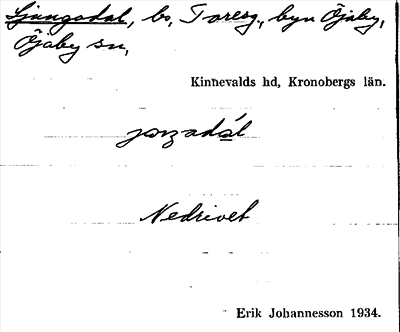 Ljungadal, bs, Toresg., byn Öjaby,
Öjaby sn,
Kinnevalds hd, Kronobergs län.
jɷŋadál
Nedrivet
Erik Johannesson 1934.